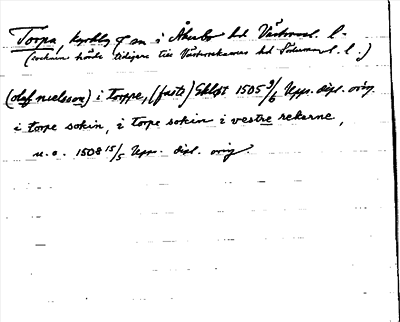 Torpa, kyrkby o sn i Åkerbo hd Västmanl. l.
(socknen hörde tidigare till Västerrekarnes hd Söderman l. l.)
(olaf nielsson) i torppe, (faste) Ekløst 1505 9/6 Upps. dipl. orig.
i torpe sokin, i torpe sokin i vestre rekarne,
u.o. 1508 15/5 Upps. dipl. orig.